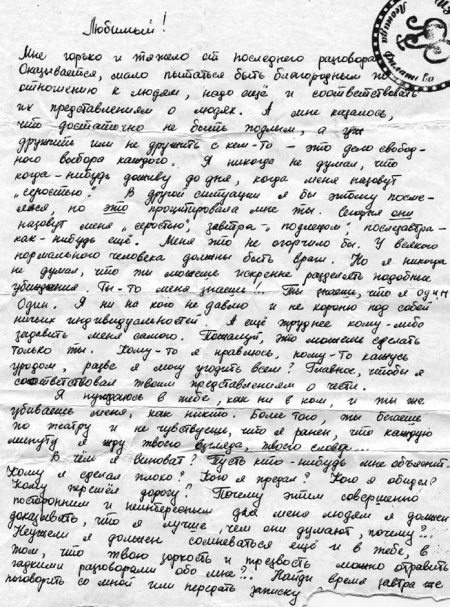 Любимый!
Леонида Филатова
Мне горько и тяжело от последнего разговора.
Оказывается, мало пытаться быть благородным по
отношению к людям, надо ещё и соответствовать
их представлениям о людях. А мне казалось,
что достаточно не быть подлым, а уж
дружить или не дружить с кем-то – это дело свобод-
ного выбора каждого. Я никогда не думал, что
когда-нибудь доживу до дня, когда меня назовут
"серостью". В другой ситуации я бы этому посме-
ялся, но это процитировала мне ты. Сегодня они
назовут меня "серостью", завтра – "подлецом", послезавтра –
как-нибудь ещё. Меня это не огорчило бы. У всякого
нормального человека должны быть враги. Но я никогда
не думал, что ты можешь искренне разделять подобные
убеждения. Ты-то меня знаешь!.. Ты знаешь, что я один
Один. Я ни на кого не давлю и не хороню под собой
ничьих индивидуальностей. А ещё труднее кому-либо
задавить меня самого. Пожалуй, это можешь сделать
только ты. Кому-то я нравлюсь, кому-то кажусь
уродом, разве я могу угодить всем? Главное, чтобы я
соответствовал твоим представлениям о чести.
Я нуждаюсь в тебе, как ни в ком, и ты же
убиваешь меня, как никто. Более того, ты бегаешь
по театру и не чувствуешь, что я ранен, что каждую
минуту я жду твоего взгляда, твоего слова...
В чём я виноват? Пусть кто-нибудь мне объяснит.
Кому я сделал плохо? Кого я предал? Кого я обидел?
Кому перешёл дорогу? Почему этим совершенно
посторонним и неинтересным для меня людям я должен
доказывать, что я лучше, чем они думают, почему?..
Неужели я должен сомневаться ещё и в тебе, в
том, что твою зоркость и трезвость можно отравить
гадкими разговорами обо мне?.. Найди время завтра же
поговорить со мной или передать записку